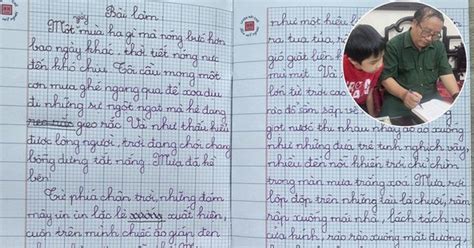 Bài làm
Một ngày mưa hạ gì mà nóng bức hơn
bao ngày khác. Thời tiết nóng nực
đến khó chịu. Tôi cầu mong một
cơn mưa ghé ngang qua để xóa dịu
đi những sự ngột ngạt mà hè đang
gieo rắc. Và như thấu hiểu
được lòng người, trời đang chói chang
bỗng dưng tắt nắng. Mưa đã kề
bên.
Từ phía chân trời, những đám
mây ùn ùn lấc lẻ xuất hiện,
cuộn trên mình chiếc áo giáp đen
như một hiệu l
ra tua tủa,
gió giật liên
mù mịt. Và
lớn từ trời cao
rào" ầm sập
gọt nước thi nhau nhảy ào ào xuống
như những đứa trẻ tinh nghịch vậy,
nhiều đến nỗi khiến trời chỉ chìm
trong màn mưa trắng xóa. Mưa rơi
lộp độp trên những tàu lá chuối, rơi
rầm rập xuống mái nhà, lách tách vào
cửa kính, rào rào xuống mặt đường